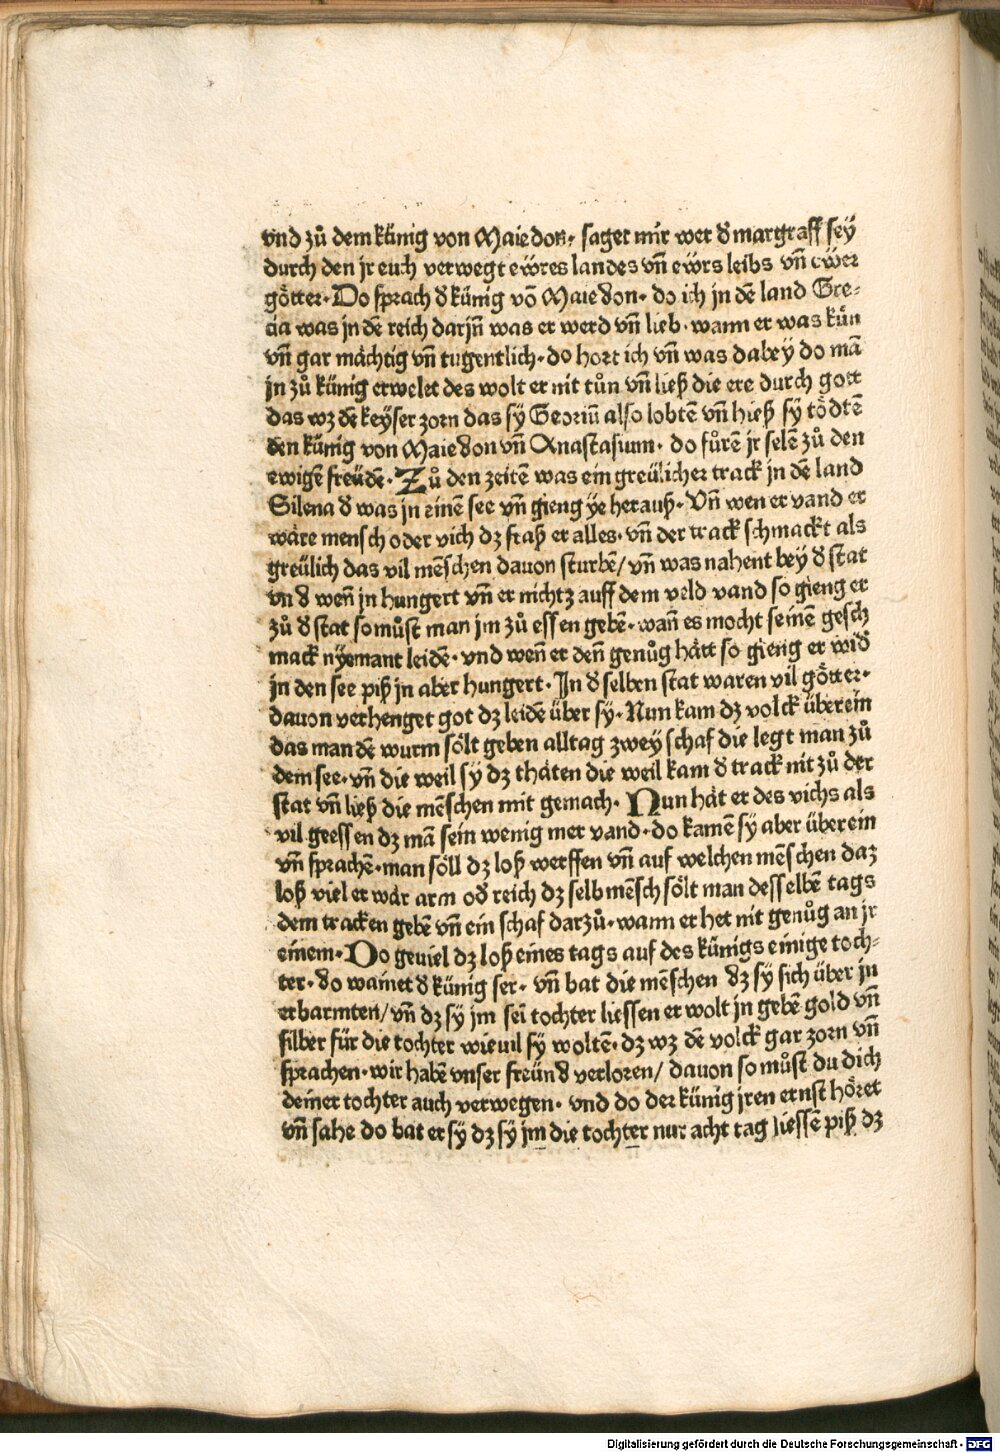 vnd zů dem künig von Maiedon· saget mir wer d̕ margraff sey
durch den jr euch verwegt ewres landes vn̄ ewrs leibs vn̄ ewer
götter· Do sprach d̕ künig vō Maiedon· do ich in dē land Gre⸗
cia was in dē reich darjn̄ was er werd vn̄ lieb· wann er was kůn
vn̄ gar mächtig vn̄ tugentlich· do hort ich vn̄ was dabey do mā
jn zů künig erwelet des wolt er nit tůn vn̄ ließ die ere durch gott
das wz dē keyser zorn das sÿ Georiū also lobtē vn̄ hieß sÿ tödtē
den künig von Maiedon vn̄ Anastasium· do fůrē jr selē zů den
ewigē freüdē· Zů den zeitē was ein greülicher track in dē land
Silena d̕ was in einē see vn̄ gieng ÿe herauß· Vn̄ wen er vand er
wäre mensch oder vich dz fraß er alles· vn̄ der track schmackt als
greülich das vil mēschen dauon sturbē/ vn̄ was nahent bey d̕ stat
vnd wen̄ jn hungert vn̄ er nichtz auff dem veld vand so gieng er
zů d̕ stat so můst man jm zů essen gebē· wan̄ es mocht seinē gesch
mack nÿemant leidē· vnd wen̄ er den̄ genůg hätt so gieng er wid̕
in den see piß jn aber hungert· In d̕ selben stat waren vil götter·
dauon verhenget got dz leidē über sÿ· Nun kam dz volck überein
das man dē wurm sölt geben alltag zwey schaf die legt man zů
dem see· vn̄ die weil sÿ dz thäten die weil kam d̕ track nit zů der
stat vn̄ ließ die mēschen mit gemach· Nun hät er des vichs als
vil geessen dz mā sein wenig mer vand· do kamē sÿ aber überein
vn̄ sprachē· man söll dz loß werffen vn̄ auf welchen mēschen daz
loß viel er wär arm od̕ reich dz selb mēsch sölt man desselbē tags
dem tracken gebē vn̄ ein schaf darzů· wann er het nit genůg an jr
einem· Do geuiel dz loß eines tags auf des künigs einige toch⸗
ter· do wainet d̕ künig ser· vn̄ bat die mēschen dz sÿ sich über jn
erbarmten/ vn̄ dz sÿ jm sei tochter liessen er wolt jn gebē gold vn̄
silber für die tochter wieuil sÿ woltē· dz wz dē volck gar zorn vn̄
sprachen· wir habē vnser freünd verloren/ dauon so můst du dich
deiner tochter auch verwegen· vnd do der künig jren ernst höret
vn̄ sahe do bat er sÿ dz sÿ jm die tochter nur acht tag liessē piß dz
Digitalisierung gefördert durch die Deutsche Forschungsgemeinschaft - DFG